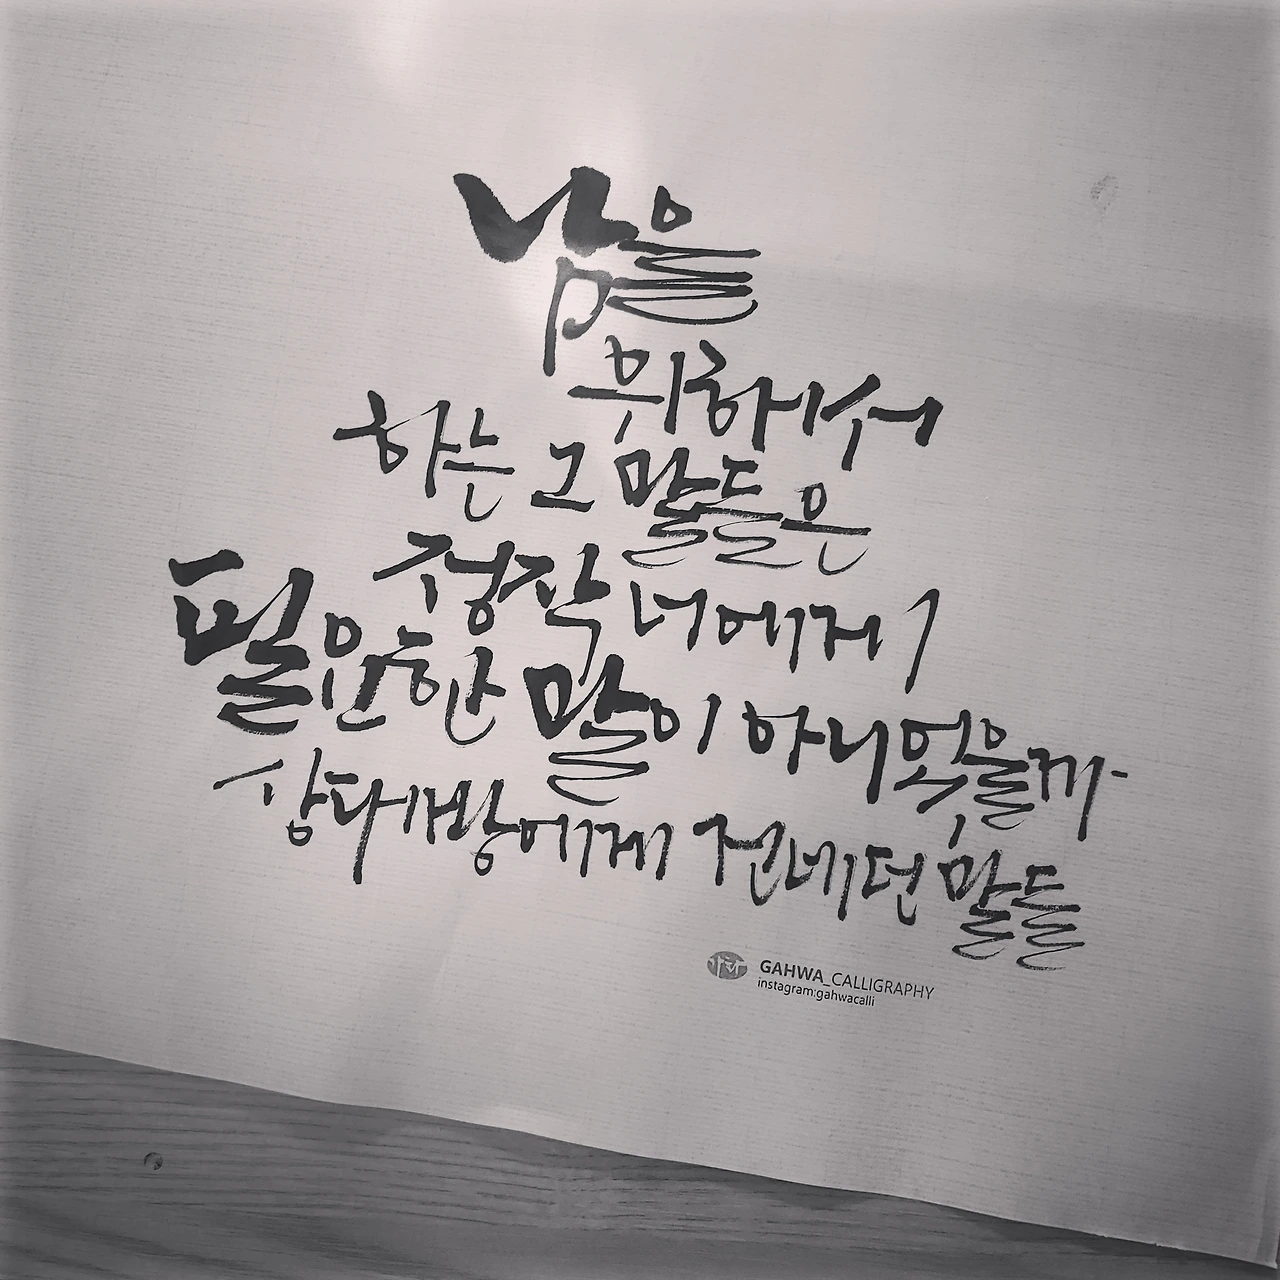 남을
위해서
하는 그 말들은
정작 너에게
필요한 말이 아니었을까
상대방에게 건네던 말들
가화
GAHWA_CALLIGRAPHY
instagram:gahwacalli